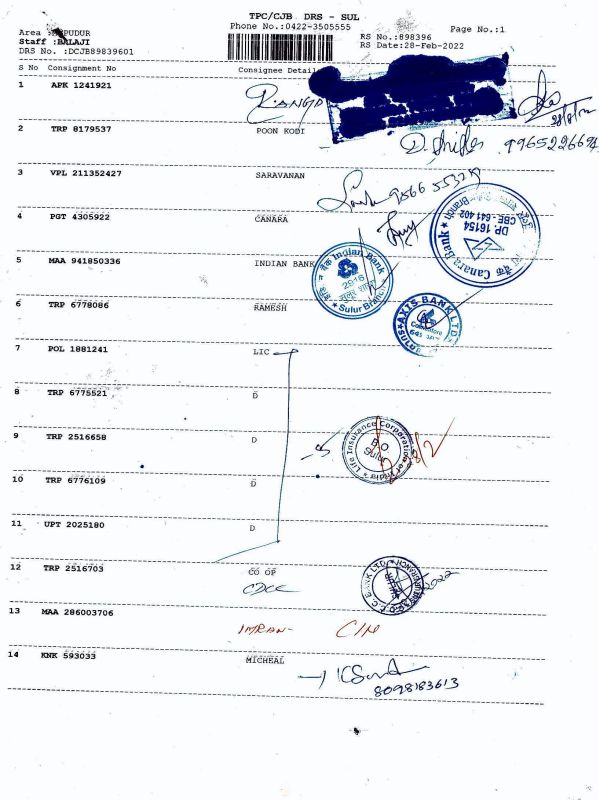 TPC/CJB DRS - SUL
Phone No.:0422-3505555
Page No.:1
Staff :BALAJI
DRS No. :DCJB89839601
RS No.:898396
RS Date:28-Feb-2022
S No Consignment No Consignee Detail
1 APK 1241921
2 TRP 8179537 POON KODI
3 VPL 211352427 SARAVANAN
4 PGT 4305922 CANARA
Canara Bank
DP 16154
CBE - 641 402
5 MAA 941850336 INDIAN BANK
Indian Bank
Sulur Branch
6 TRP 6778086 RAMESH
AXIS BANK LTD.
7 POL 1881241 LIC
8 TRP 6775521 D
9 TRP 2516658 D
Life Insurance Corporation of India
B O
Sulur
28/2
10 TRP 6776109 D
11 UPT 2025180 D
12 TRP 2516703 CO OP
CDCC
13 MAA 286003706
IMRAN-
14 KNK 593033 MICHEAL
8098183613